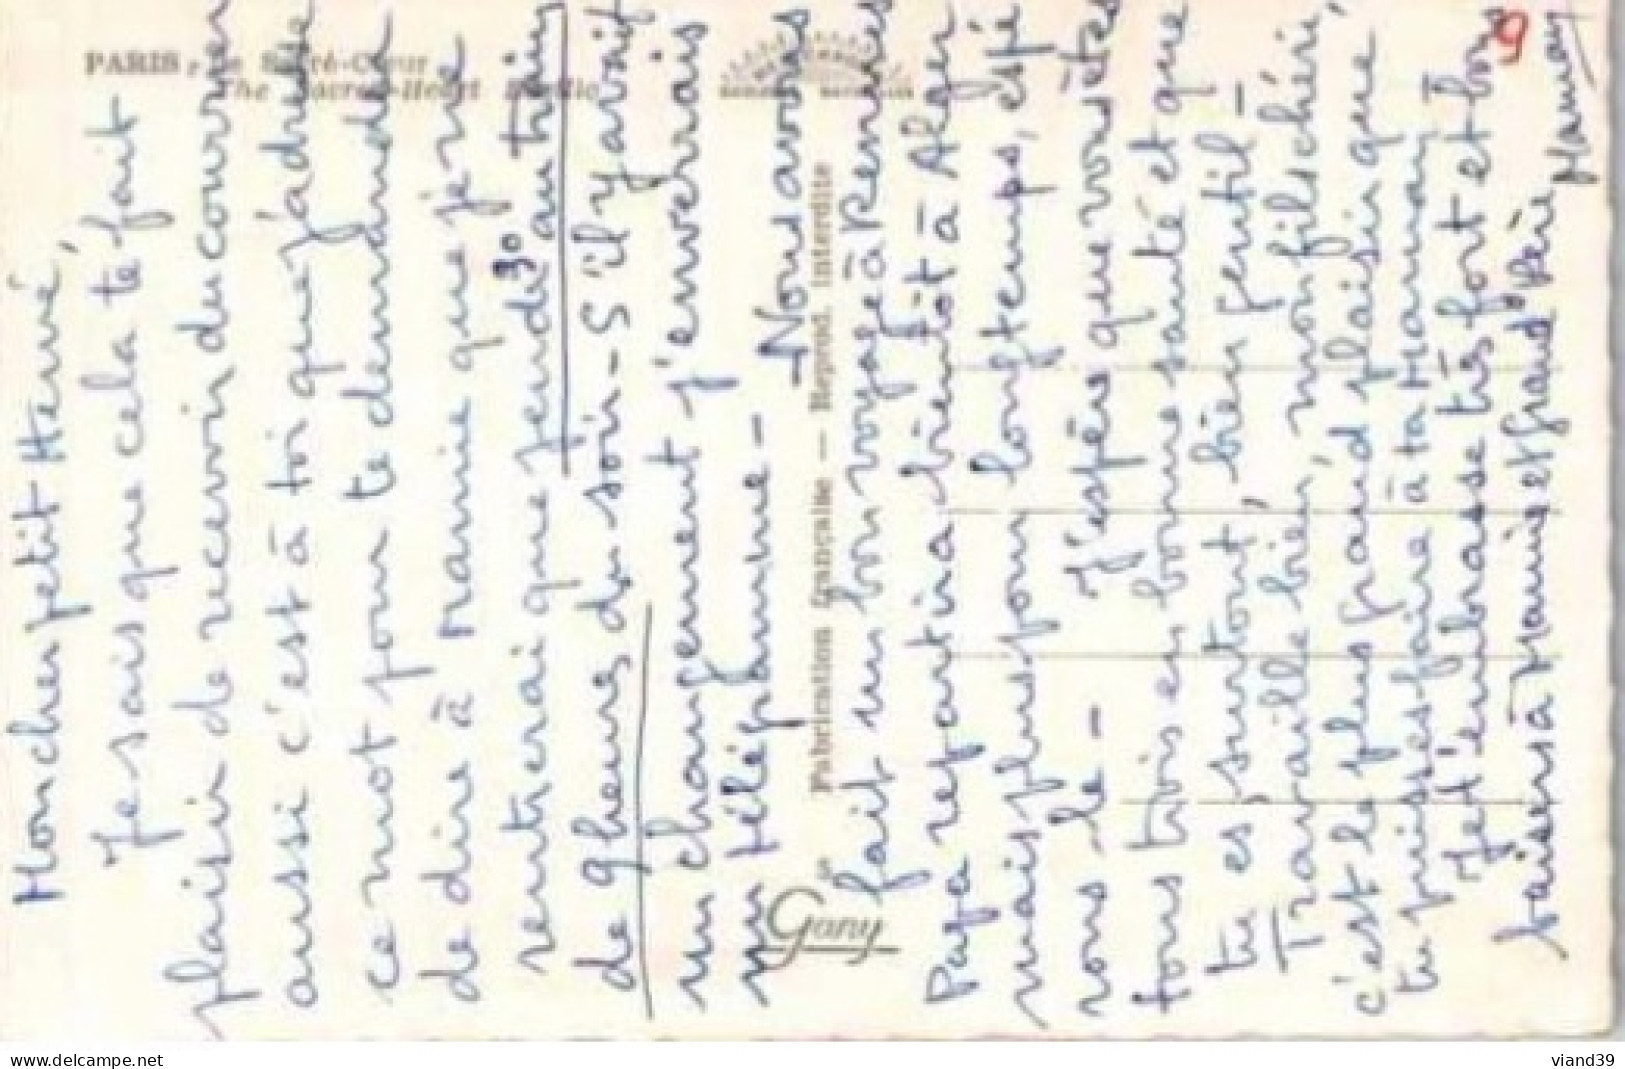 PARIS - Le Sacré-Cœur
The Sacred-Heart Basilic
Fabrication française — Reprod. interdite
Gany
9
Mon cher petit Hervé,
Je sais que cela te fait
plaisir de recevoir du courrier
aussi c'est à toi que j'adresse
ce mot pour te demander
de dire à Mamie que je ne
rentrerai que jeudi 30 au train
de 9 heures du soir - S'il y avait
un changement j'enverrais
un télégramme - Nous avons
fait un bon voyage à Rennes
Papa repartira bientôt à Alger
mais plus pour longtemps, espé
rons le - J'espère que vous êtes
tous trois en bonne santé et que
tu es surtout, bien gentil -
Travaille bien, mon fils chéri,
c'est le plus grand plaisir que
tu puisses faire à ta Maman
Je t'embrasse très fort et bons
baisers à Mamie et Grand Père
Maman
delcampe.net
viand39